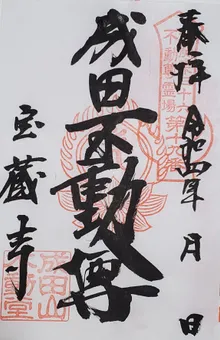 奉拝
令和四年 月 日
成田不動尊
宝蔵寺
不動尊霊場
第十六番
成田山
不動堂